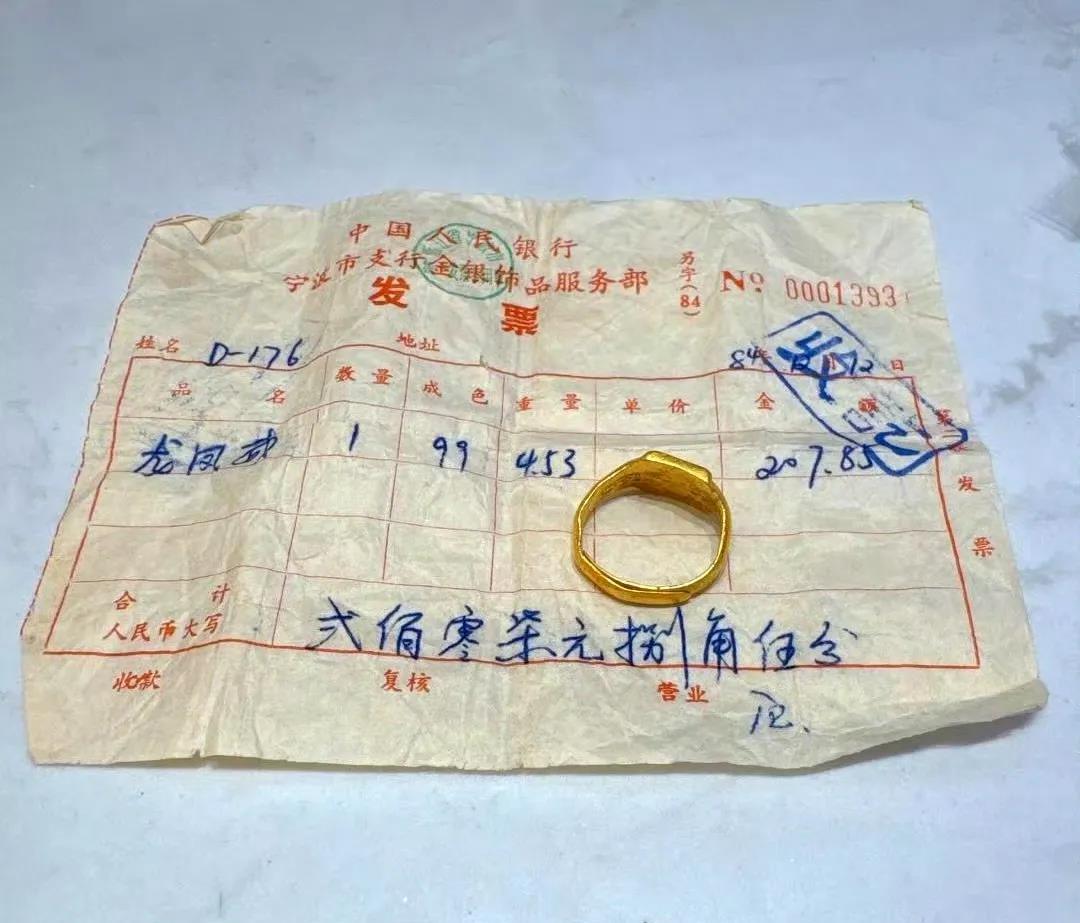 中国人民银行
宁波市支行金银饰品服务部
发票
另字(84)
No. 0001393
姓名 D-176 地址 84年12月12日
品名 数量 成色 重量 单价 金额
龙凤戒 1 99 4.53 207.85
合计
人民币大写 弍佰零柒元捌角伍分
收款 复核 营业
发票